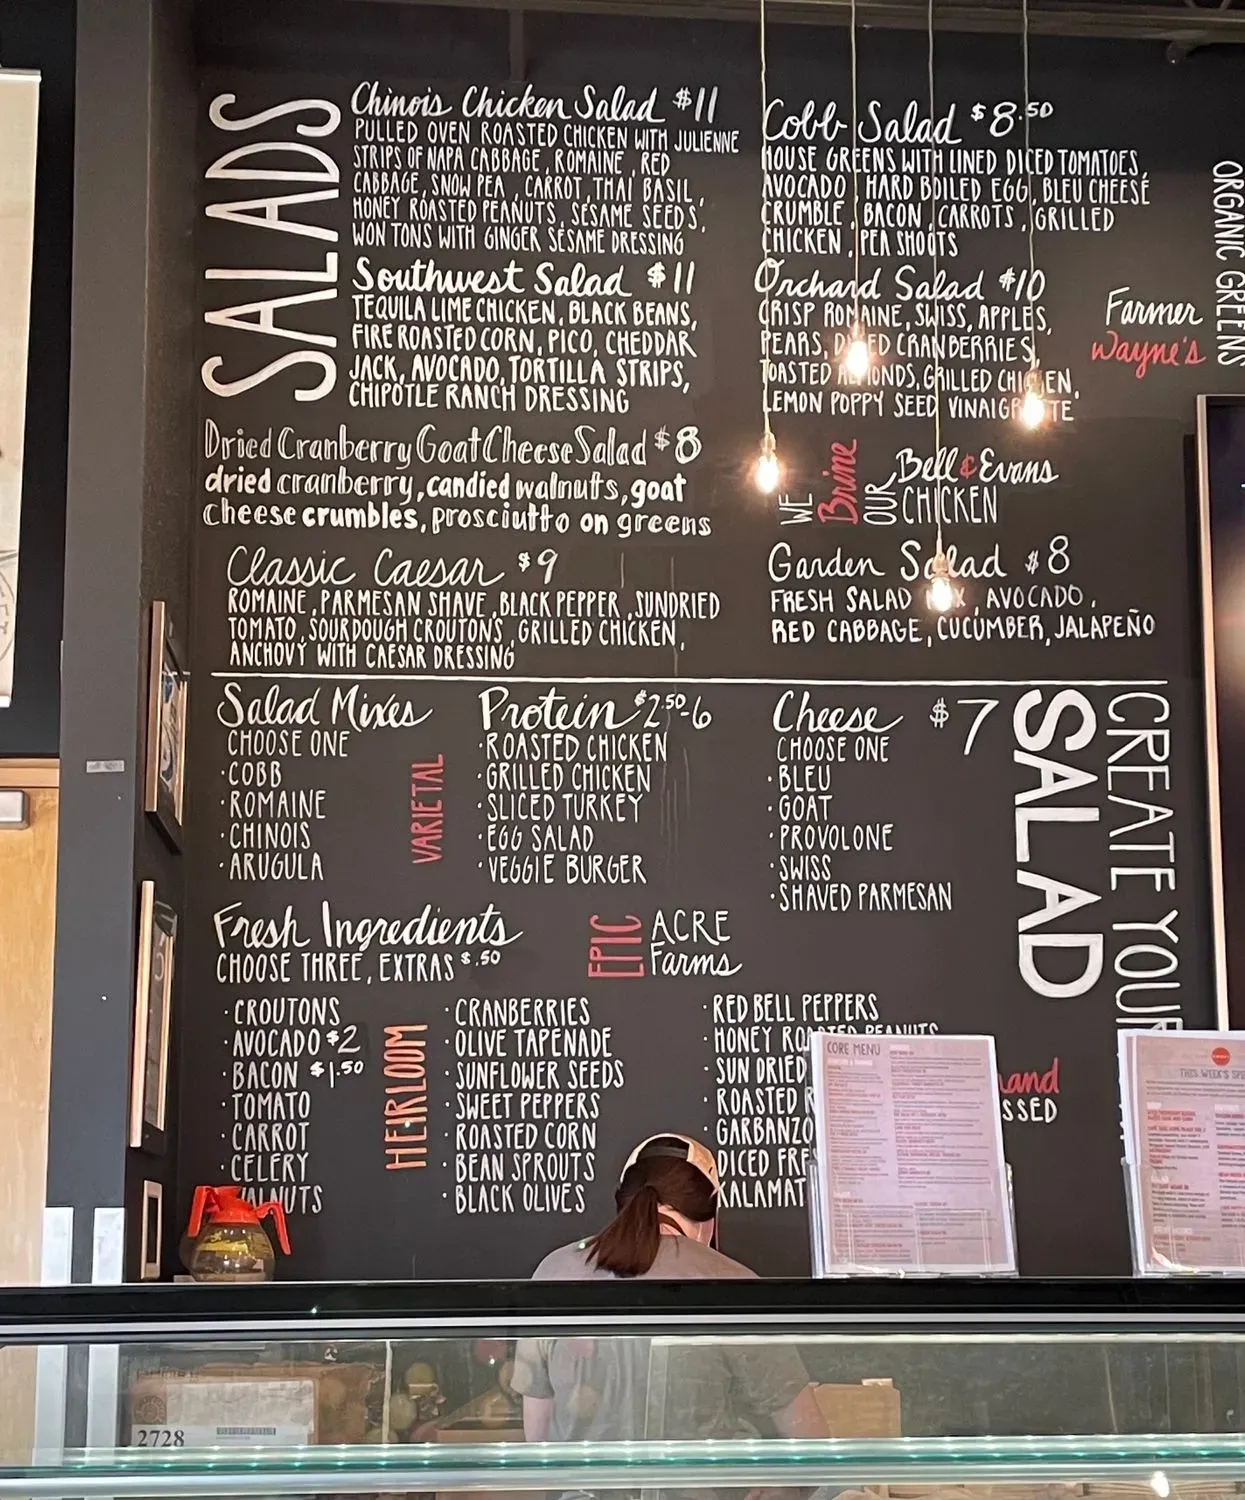 SALADS
Chinois Chicken Salad $11
PULLED OVEN ROASTED CHICKEN WITH JULIENNE
STRIPS OF NAPA CABBAGE, ROMAINE, RED
CABBAGE, SNOW PEA, CARROT, THAI BASIL,
HONEY ROASTED PEANUTS, SESAME SEEDS,
WON TONS WITH GINGER SESAME DRESSING
Southwest Salad $11
TEQUILA LIME CHICKEN, BLACK BEANS,
FIRE ROASTED CORN, PICO, CHEDDAR
JACK, AVOCADO, TORTILLA STRIPS,
CHIPOTLE RANCH DRESSING
Dried Cranberry Goat Cheese Salad $8
dried cranberry, candied walnuts, goat
cheese crumbles, prosciutto on greens
Classic Caesar $9
ROMAINE, PARMESAN SHAVE, BLACK PEPPER, SUNDRIED
TOMATO, SOURDOUGH CROUTONS, GRILLED CHICKEN,
ANCHOVY WITH CAESAR DRESSING
Cobb Salad $8.50
HOUSE GREENS WITH LINED DICED TOMATOES,
AVOCADO, HARD BOILED EGG, BLEU CHEESE
CRUMBLE, BACON, CARROTS, GRILLED
CHICKEN, PEA SHOOTS
Orchard Salad $10
CRISP ROMAINE, SWISS, APPLES,
PEARS, DRIED CRANBERRIES,
TOASTED ALMONDS, GRILLED CHICKEN,
LEMON POPPY SEED VINAIGRETTE
Farmer
Wayne's
ORGANIC GREENS
WE Brine OUR
Bell & Evans
CHICKEN
Garden Salad $8
FRESH SALAD MIX, AVOCADO,
RED CABBAGE, CUCUMBER, JALAPEÑO
CREATE YOUR
SALAD
$7
Salad Mixes
CHOOSE ONE
·COBB
·ROMAINE
·CHINOIS
·ARUGULA
VARIETAL
Protein $2.50-6
·ROASTED CHICKEN
·GRILLED CHICKEN
·SLICED TURKEY
·EGG SALAD
·VEGGIE BURGER
Cheese
CHOOSE ONE
·BLEU
·GOAT
·PROVOLONE
·SWISS
·SHAVED PARMESAN
Fresh Ingredients
CHOOSE THREE, EXTRAS $.50
EPIC
ACRE
Farms
·CROUTONS
·AVOCADO $2
·BACON $1.50
·TOMATO
·CARROT
·CELERY
WALNUTS
HEIRLOOM
·CRANBERRIES
·OLIVE TAPENADE
·SUNFLOWER SEEDS
·SWEET PEPPERS
·ROASTED CORN
·BEAN SPROUTS
·BLACK OLIVES
·RED BELL PEPPERS
·HONEY ROASTED PEANUTS
·SUN DRIED
·ROASTED
·GARBANZO
DICED
KALAMAT
and
SSED
CORE MENU
THIS WEEK'S
2728